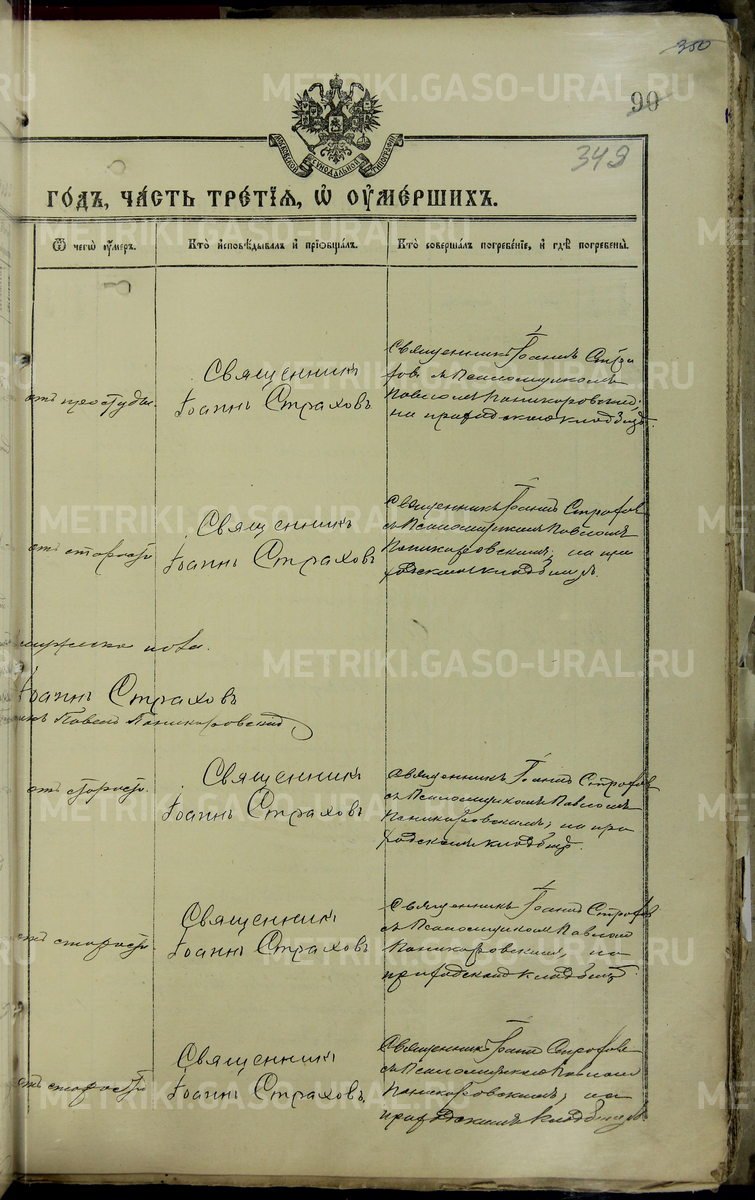 350
90
349
МОСКОВСКОЙ СѴНОДАЛЬНОЙ ТИПОГРАФІИ
ГО́ДЪ, ЧА́СТЬ ТРЕ́ТІѦ, Ѡ҆ ОУ҆МЕ́РШИХЪ.
Ѿ чегѡ̀ оу҆́меръ.
Кто̀ и҆сповѣ́дывалъ и҆ прїѡбща́лъ.
Кто̀ соверша́лъ погребе́нїе, и҆ гдѣ̀ погребены̀.
отъ простуды.
Священникъ
Іоаннъ Страховъ.
Священникъ Іоаннъ Стра
ховъ съ Псаломщикомъ
Павломъ Паникоровскимъ;
на приходскомъ кладбищѣ.
отъ старости
Священникъ
Іоаннъ Страховъ
Священникъ Іоаннъ Страховъ
съ Псаломщикомъ Павломъ
Паникоровскимъ; на при
ходскомъ кладбищѣ.
женска пола.
Іоаннъ Страховъ
Павелъ Паникоровскій
отъ старости.
Священникъ
Іоаннъ Страховъ
Священникъ Іоаннъ Страховъ
съ Псаломщикомъ Павломъ
Паникоровскимъ; на при
ходскомъ кладбищѣ.
отъ старости
Священникъ
Іоаннъ Страховъ
Священникъ Іоаннъ Страховъ
съ Псаломщикомъ Павломъ
Паникоровскимъ, на
приходскомъ кладбищѣ.
отъ старости
Священникъ
Іоаннъ Страховъ.
Священникъ Іоаннъ Страховъ
съ Псаломщикомъ Павломъ
Паникоровскимъ, на
приходскомъ кладбищѣ.
METRIKI.GASO-URAL.RU